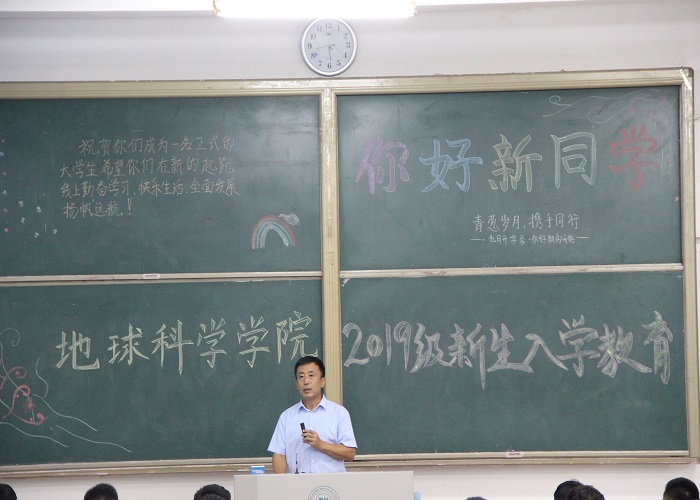 祝贺你们成为一名正式的
大学生,希望你们在新的起跑
线上勤奋学习、快乐生活、全面发展
扬帆远航!
你好新同学
青葱岁月、携手同行
地球科学学院
2019级新生入学教育